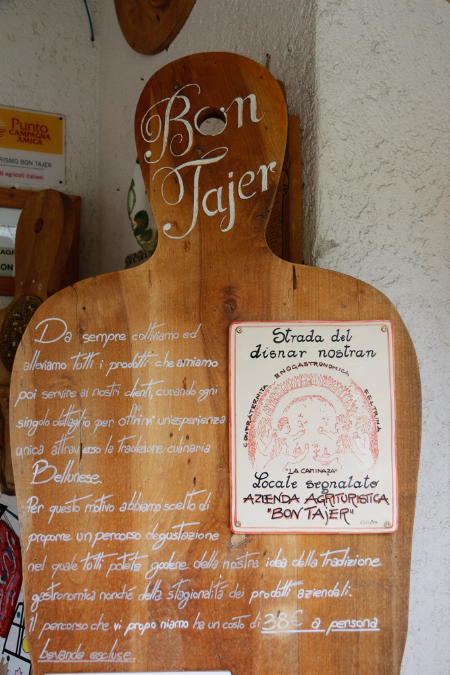 Bon
Tajer
Punto
CAMPAGNA
AMICA
RISMO BON TAJER
agricoli italiani
Da sempre coltiviamo ed
alleviamo tutti i prodotti che amiamo
poi servire ai nostri clienti, curando ogni
singolo dettaglio per offrirvi un'esperienza
unica attraverso la tradizione culinaria
Bellunese.
Per questo motivo abbiamo scelto di
proporre un percorso degustazione
nel quale tutti potete godere della nostra idea della tradizione
gastronomica nonché della stagionalità dei prodotti aziendali.
Il percorso che vi proponiamo ha un costo di 38€ a persona
bevande escluse.
Strada del
disnar nostran
CONFRATERNITA ENOGASTRONOMICA FELTRINA
"LA CAMINAZA"
Locale segnalato
AZIENDA AGRITURISTICA
"BON TAJER"